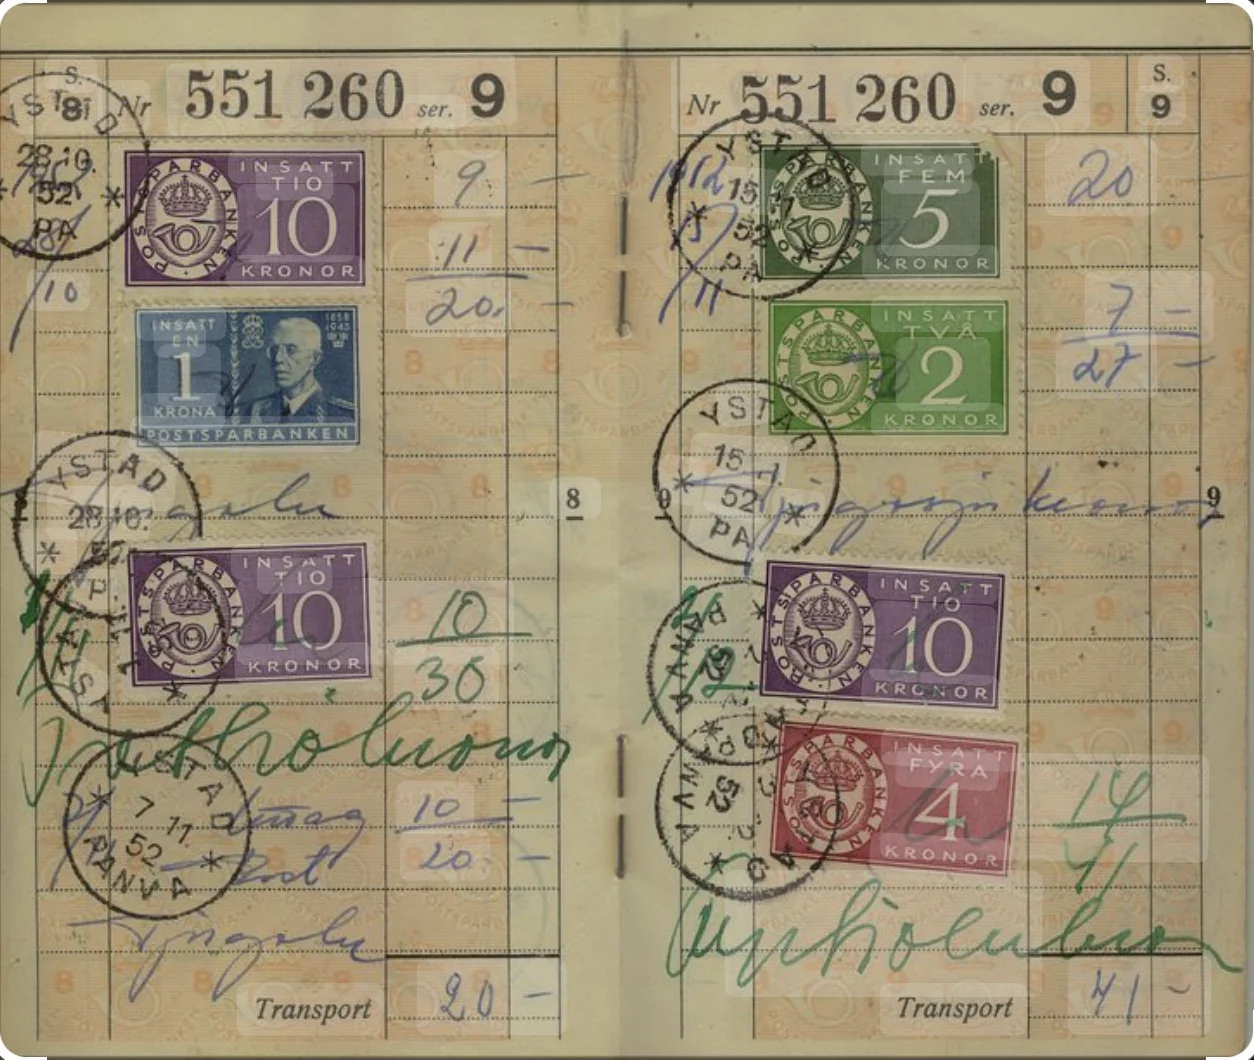 S.
8
Nr 551 260 ser. 9
YSTAD
28.10.
52
PA
9 —
INSATT
TIO
10
KRONOR
POSTSPARBANKEN
28/10
11 —
20. —
INSATT
EN
1
KRONA
1858
1948
POSTSPARBANKEN
YSTAD
28.10.
52
P.
Tjugolu
8
INSATT
TIO
10
KRONOR
POSTSPARBANKEN
10
30
YSTAD
7 11.
52
PANVA
Uttag 10 —
Rest 20. —
Tjugolu
Transport 20 —
Nr 551 260 ser. 9
S.
9
YSTAD
15
52
PA
1952
20 —
INSATT
FEM
5
KRONOR
POSTSPARBANKEN
15/11
7 —
INSATT
TVÅ
2
KRONOR
POSTSPARBANKEN
27 —
YSTAD
15
52
PA
9
Tjugosju kronor
9
INSATT
TIO
10
KRONOR
POSTSPARBANKEN
PANVA
52
INSATT
FYRA
4
KRONOR
POSTSPARBANKEN
14
41
52
Transport 41 —